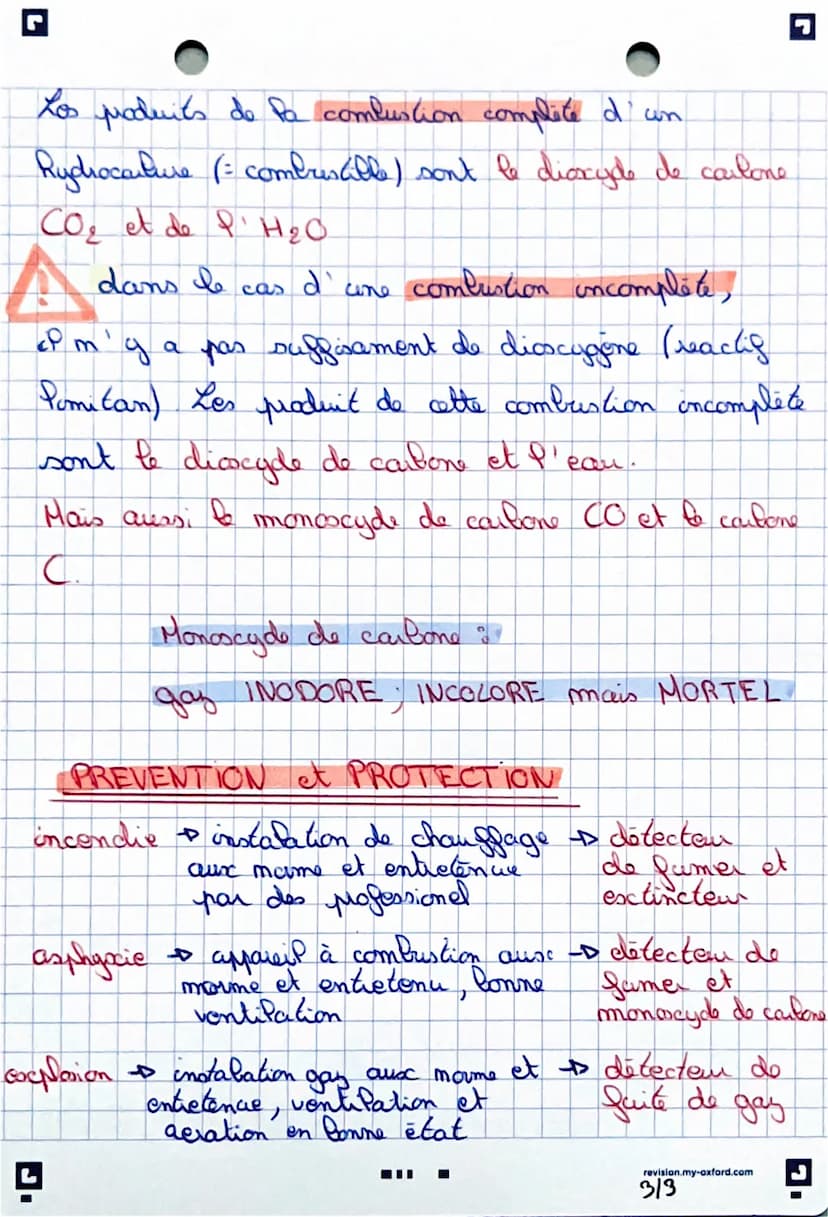 Les produits de la combustion complète d'un
Hydrocarbure (= combustible) sont le dioxyde de carbone
CO₂ et de l'H₂O
dans le cas d'une combustion incomplète,
il n'y a pas suffisament de dioxygène (reactif
limitan). Les produit de cette combustion incomplète
sont le dioxyde de carbone et l'eau.
Mais aussi le monoxyde de carbone CO et le carbone
C.
Monoxyde de carbone :
gaz INODORE ; INCOLORE mais MORTEL
PREVENTION et PROTECTION
incendie → instalation de chauffage → détecteur
aux morme et entretenue de fumer et
par des professionel extincteur
asphyxie → appareil à combustion aux → détecteur de
morme et entretenu, bonne fumer et
ventilation monoxyde de carbone
explosion → instalation gaz aux morme et → détecteur de
entretenue, ventilation et fuite de gaz
aeration en bonne état
revision.my-oxford.com
3/3